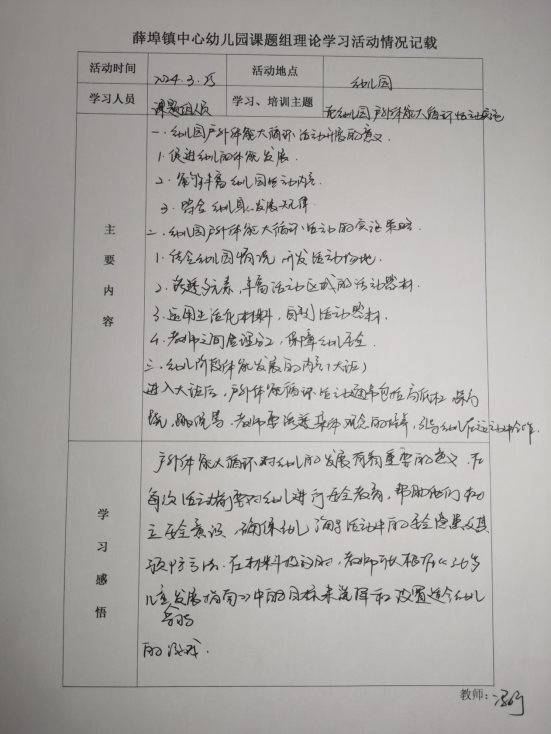 薛埠镇中心幼儿园课题组理论学习活动情况记载
活动时间 2024.3.25 活动地点 幼儿园
学习人员 课题组人员 学习、培训主题 幼儿园户外体能大循环活动实施
主要内容
一.幼儿园户外体能大循环活动开展的意义
1.促进幼儿的体能发展.
2.能够丰富幼儿园活动内容
3.符合幼儿身心发展规律
二.幼儿园户外体能大循环活动的实施策略
1.结合幼儿园情况,开发活动场地.
2.渗透多元素,丰富活动区域的活动器材.
3.运用生活化材料,自制活动器材.
4.教师之间合理分工,保障幼儿安全
三.幼儿阶段体能发展的内容(大班)
进入大班后,户外体能循环活动通常包括
教师要渗透集体观念的培养,引导幼儿在运动中合作.
学习感悟
户外体能大循环对幼儿的发展有着重要的意义.在
每次活动前要对幼儿进行安全教育,帮助他们树
立安全意识,确保幼儿了解活动中的安全隐患及其
预防方法.在材料投放时,教师可以根据《3-6岁
儿童发展指南》中的目标来选择和设置适合幼儿
的游戏.
教师: